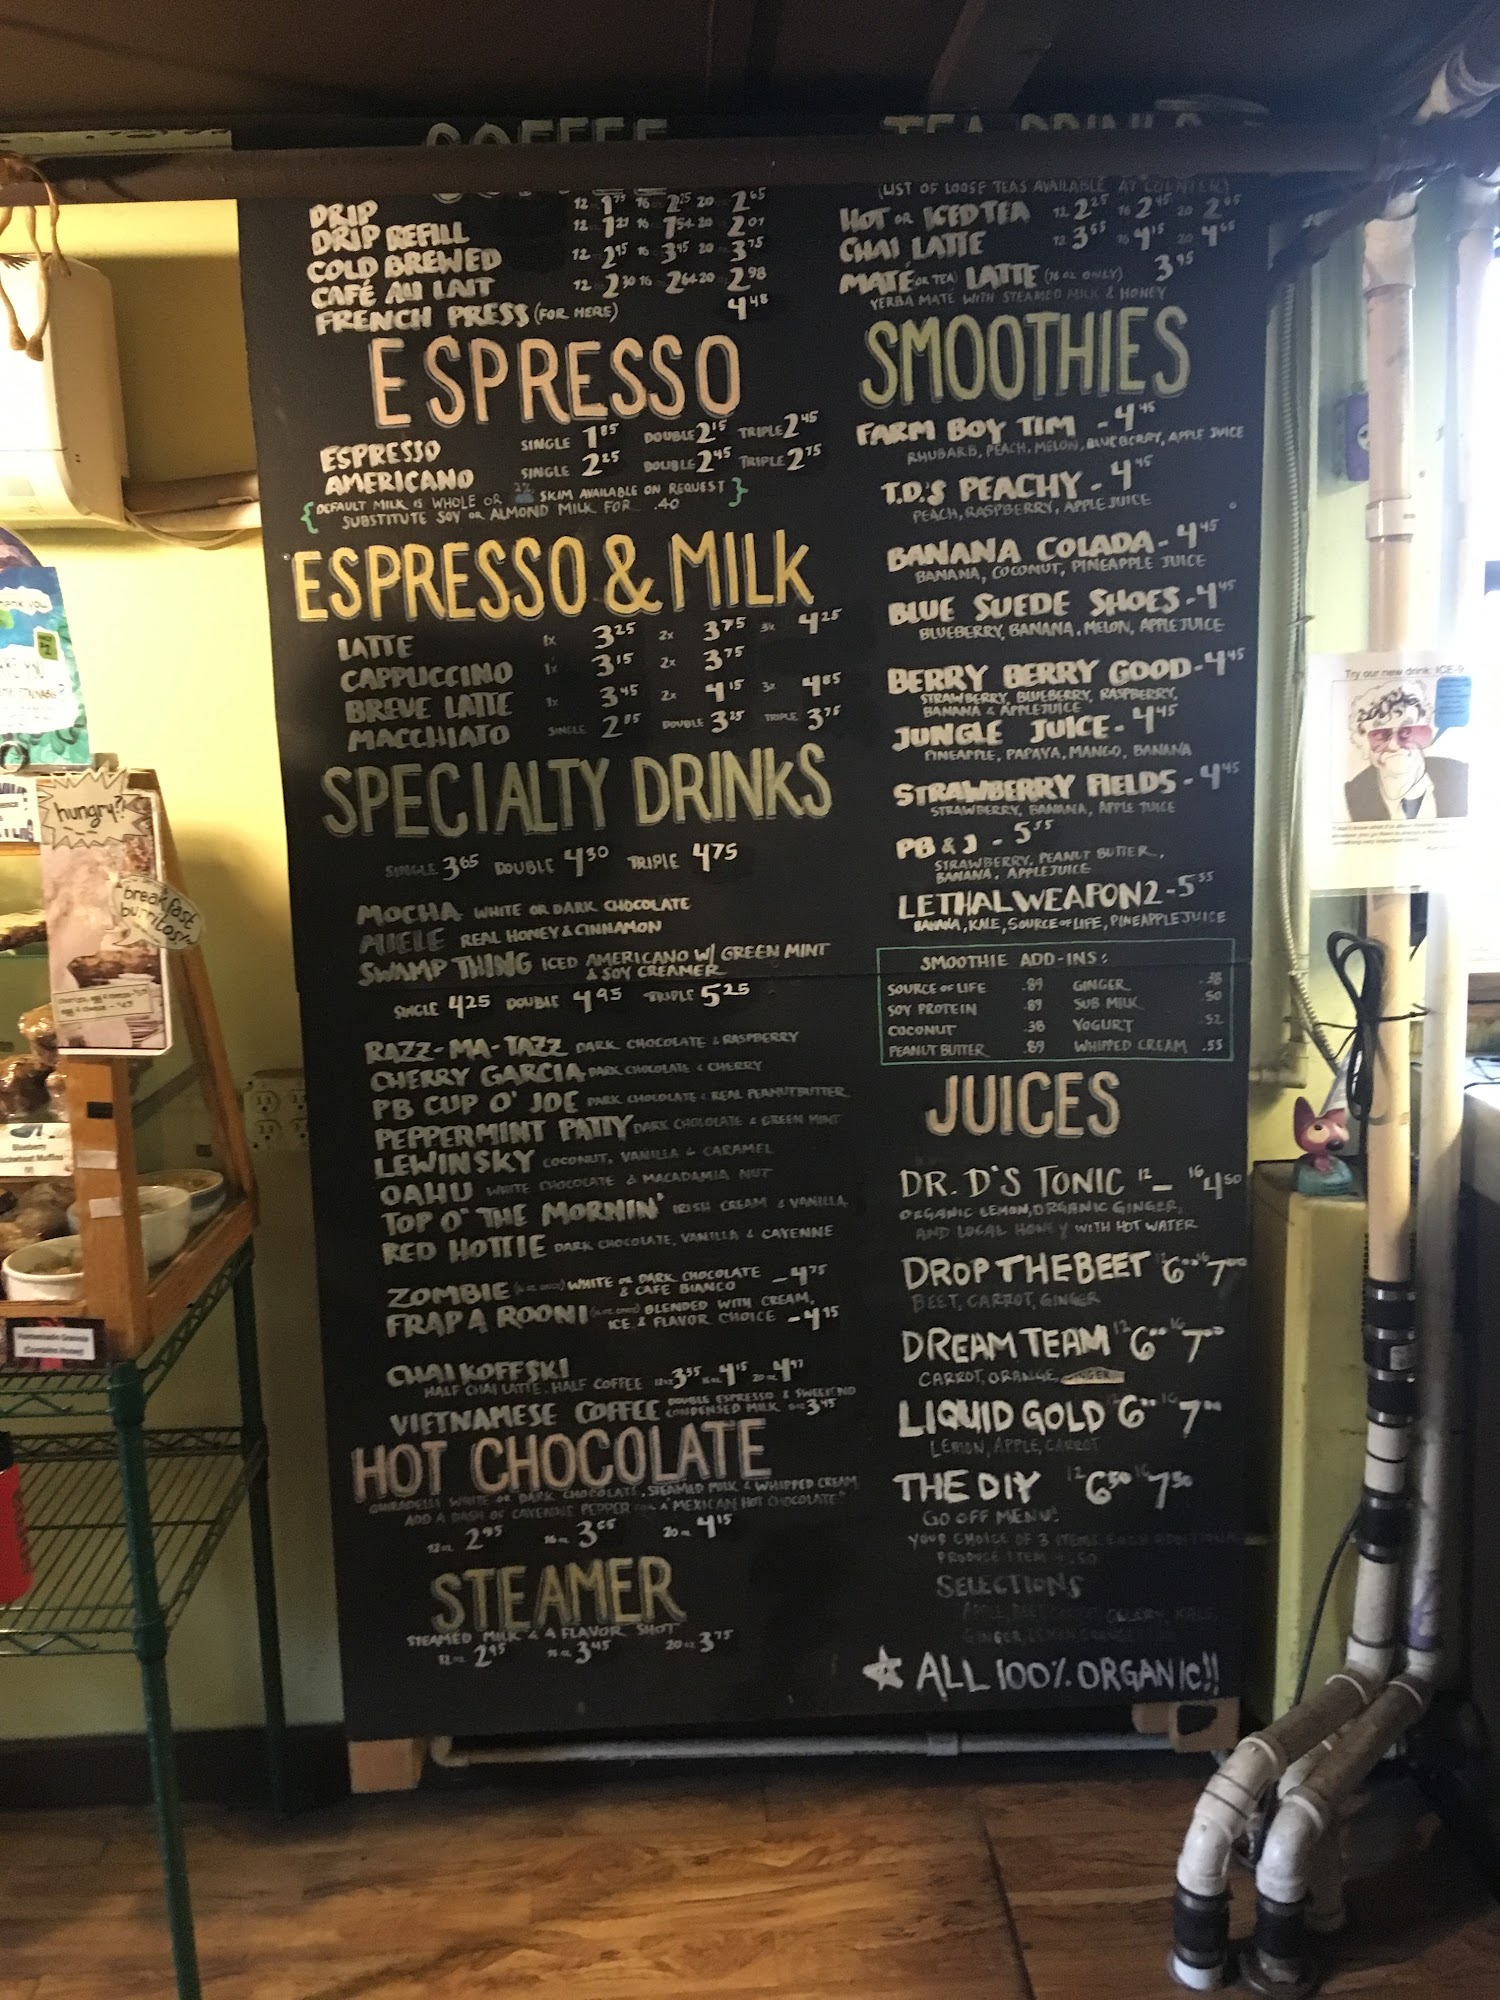 COFFEE
DRIP 12 1.75 16 2.25 20 2.65
DRIP REFILL 12 1.21 16 1.54 20 2.07
COLD BREWED 12 2.95 16 3.45 20 3.75
CAFÉ AU LAIT 12 2.30 16 2.64 20 2.98
FRENCH PRESS (FOR HERE) 4.48
ESPRESSO
ESPRESSO SINGLE 1.85 DOUBLE 2.15 TRIPLE 2.45
AMERICANO SINGLE 2.25 DOUBLE 2.45 TRIPLE 2.75
{DEFAULT MILK IS WHOLE OR 2% SKIM AVAILABLE ON REQUEST}
SUBSTITUTE SOY OR ALMOND MILK FOR .40
ESPRESSO & MILK
LATTE 1x 3.25 2x 3.75 3x 4.25
CAPPUCCINO 1x 3.15 2x 3.75
BREVE LATTE 1x 3.45 2x 4.15 3x 4.85
MACCHIATO SINGLE 2.85 DOUBLE 3.25 TRIPLE 3.75
SPECIALTY DRINKS
SINGLE 3.65 DOUBLE 4.30 TRIPLE 4.75
MOCHA WHITE OR DARK CHOCOLATE
MIELE REAL HONEY & CINNAMON
SWAMP THING ICED AMERICANO W/ GREEN MINT
& SOY CREAMER
SINGLE 4.25 DOUBLE 4.95 TRIPLE 5.25
RAZZ-MA-TAZZ DARK CHOCOLATE & RASPBERRY
CHERRY GARCIA DARK CHOCOLATE & CHERRY
PB CUP O' JOE DARK CHOCOLATE & REAL PEANUTBUTTER
PEPPERMINT PATTY DARK CHOCOLATE & GREEN MINT
LEWINSKY COCONUT, VANILLA & CARAMEL
OAHU WHITE CHOCOLATE & MACADAMIA NUT
TOP O' THE MORNIN' IRISH CREAM & VANILLA
RED HOTTIE DARK CHOCOLATE, VANILLA & CAYENNE
ZOMBIE WHITE OR DARK CHOCOLATE - 4.75
& CAFE BIANCO
FRAP A ROONI BLENDED WITH CREAM,
ICE & FLAVOR CHOICE - 4.95
CHAIKOFFSKI
HALF CHAI LATTE, HALF COFFEE 12oz 3.55 16oz 4.15 20oz 4.97
VIETNAMESE COFFEE DOUBLE ESPRESSO & SWEETEND
CONDENSED MILK 8oz 3.45
HOT CHOCOLATE
GHIRADELLI WHITE OR DARK CHOCOLATE, STEAMED MILK & WHIPPED CREAM
ADD A DASH OF CAYENNE PEPPER FOR A "MEXICAN HOT CHOCOLATE"
12oz 2.95 16oz 3.65 20oz 4.15
STEAMER
STEAMED MILK & A FLAVOR SHOT
12oz 2.95 16oz 3.45 20oz 3.75
TEA DRINKS
(LIST OF LOOSE TEAS AVAILABLE AT COUNTER)
HOT OR ICED TEA 12 2.25 16 2.45 20 2.65
CHAI LATTE 12 3.55 16 4.15 20 4.65
MATÉ (OR TEA) LATTE (16 OZ ONLY) 3.95
YERBA MATE WITH STEAMED MILK & HONEY
SMOOTHIES
FARM BOY TIM - 4.45
RHUBARB, PEACH, MELON, BLUEBERRY, APPLE JUICE
T.D.'S PEACHY - 4.45
PEACH, RASPBERRY, APPLE JUICE
BANANA COLADA - 4.45
BANANA, COCONUT, PINEAPPLE JUICE
BLUE SUEDE SHOES - 4.45
BLUEBERRY, BANANA, MELON, APPLE JUICE
BERRY BERRY GOOD - 4.45
STRAWBERRY, BLUEBERRY, RASPBERRY,
BANANA & APPLE JUICE
JUNGLE JUICE - 4.45
PINEAPPLE, PAPAYA, MANGO, BANANA
STRAWBERRY FIELDS - 4.45
STRAWBERRY, BANANA, APPLE JUICE
PB & J - 5.55
STRAWBERRY, PEANUT BUTTER,
BANANA, APPLE JUICE
LETHAL WEAPON 2 - 5.55
BANANA, KALE, SOURCE OF LIFE, PINEAPPLE JUICE
SMOOTHIE ADD-INS:
SOURCE OF LIFE .89 GINGER .38
SOY PROTEIN .89 SUB MILK .50
COCONUT .38 YOGURT .52
PEANUT BUTTER .89 WHIPPED CREAM .55
JUICES
DR. D'S TONIC 12 - 16 4.50
ORGANIC LEMON, ORGANIC GINGER,
AND LOCAL HONEY WITH HOT WATER
DROP THE BEET 12 6.00 16 7.00
BEET, CARROT, GINGER
DREAM TEAM 12 6.00 16 7.00
CARROT, ORANGE,
LIQUID GOLD 12 6.00 16 7.00
LEMON, APPLE, CARROT
THE DIY 12 6.50 16 7.50
GO OFF MENU!
YOUR CHOICE OF 3 ITEMS EACH ADDITIONAL
PRODUCE ITEM + .50
SELECTIONS
APPLE, BEET, CARROT, CELERY, KALE,
GINGER, LEMON, ORANGE
★ ALL 100% ORGANIC!!
hungry?
breakfast
burritos!
Try our new drink: ICE-9
Thank you
Blueberry
Buckwheat Muffins
Homemade Granola
(Contains Honey)